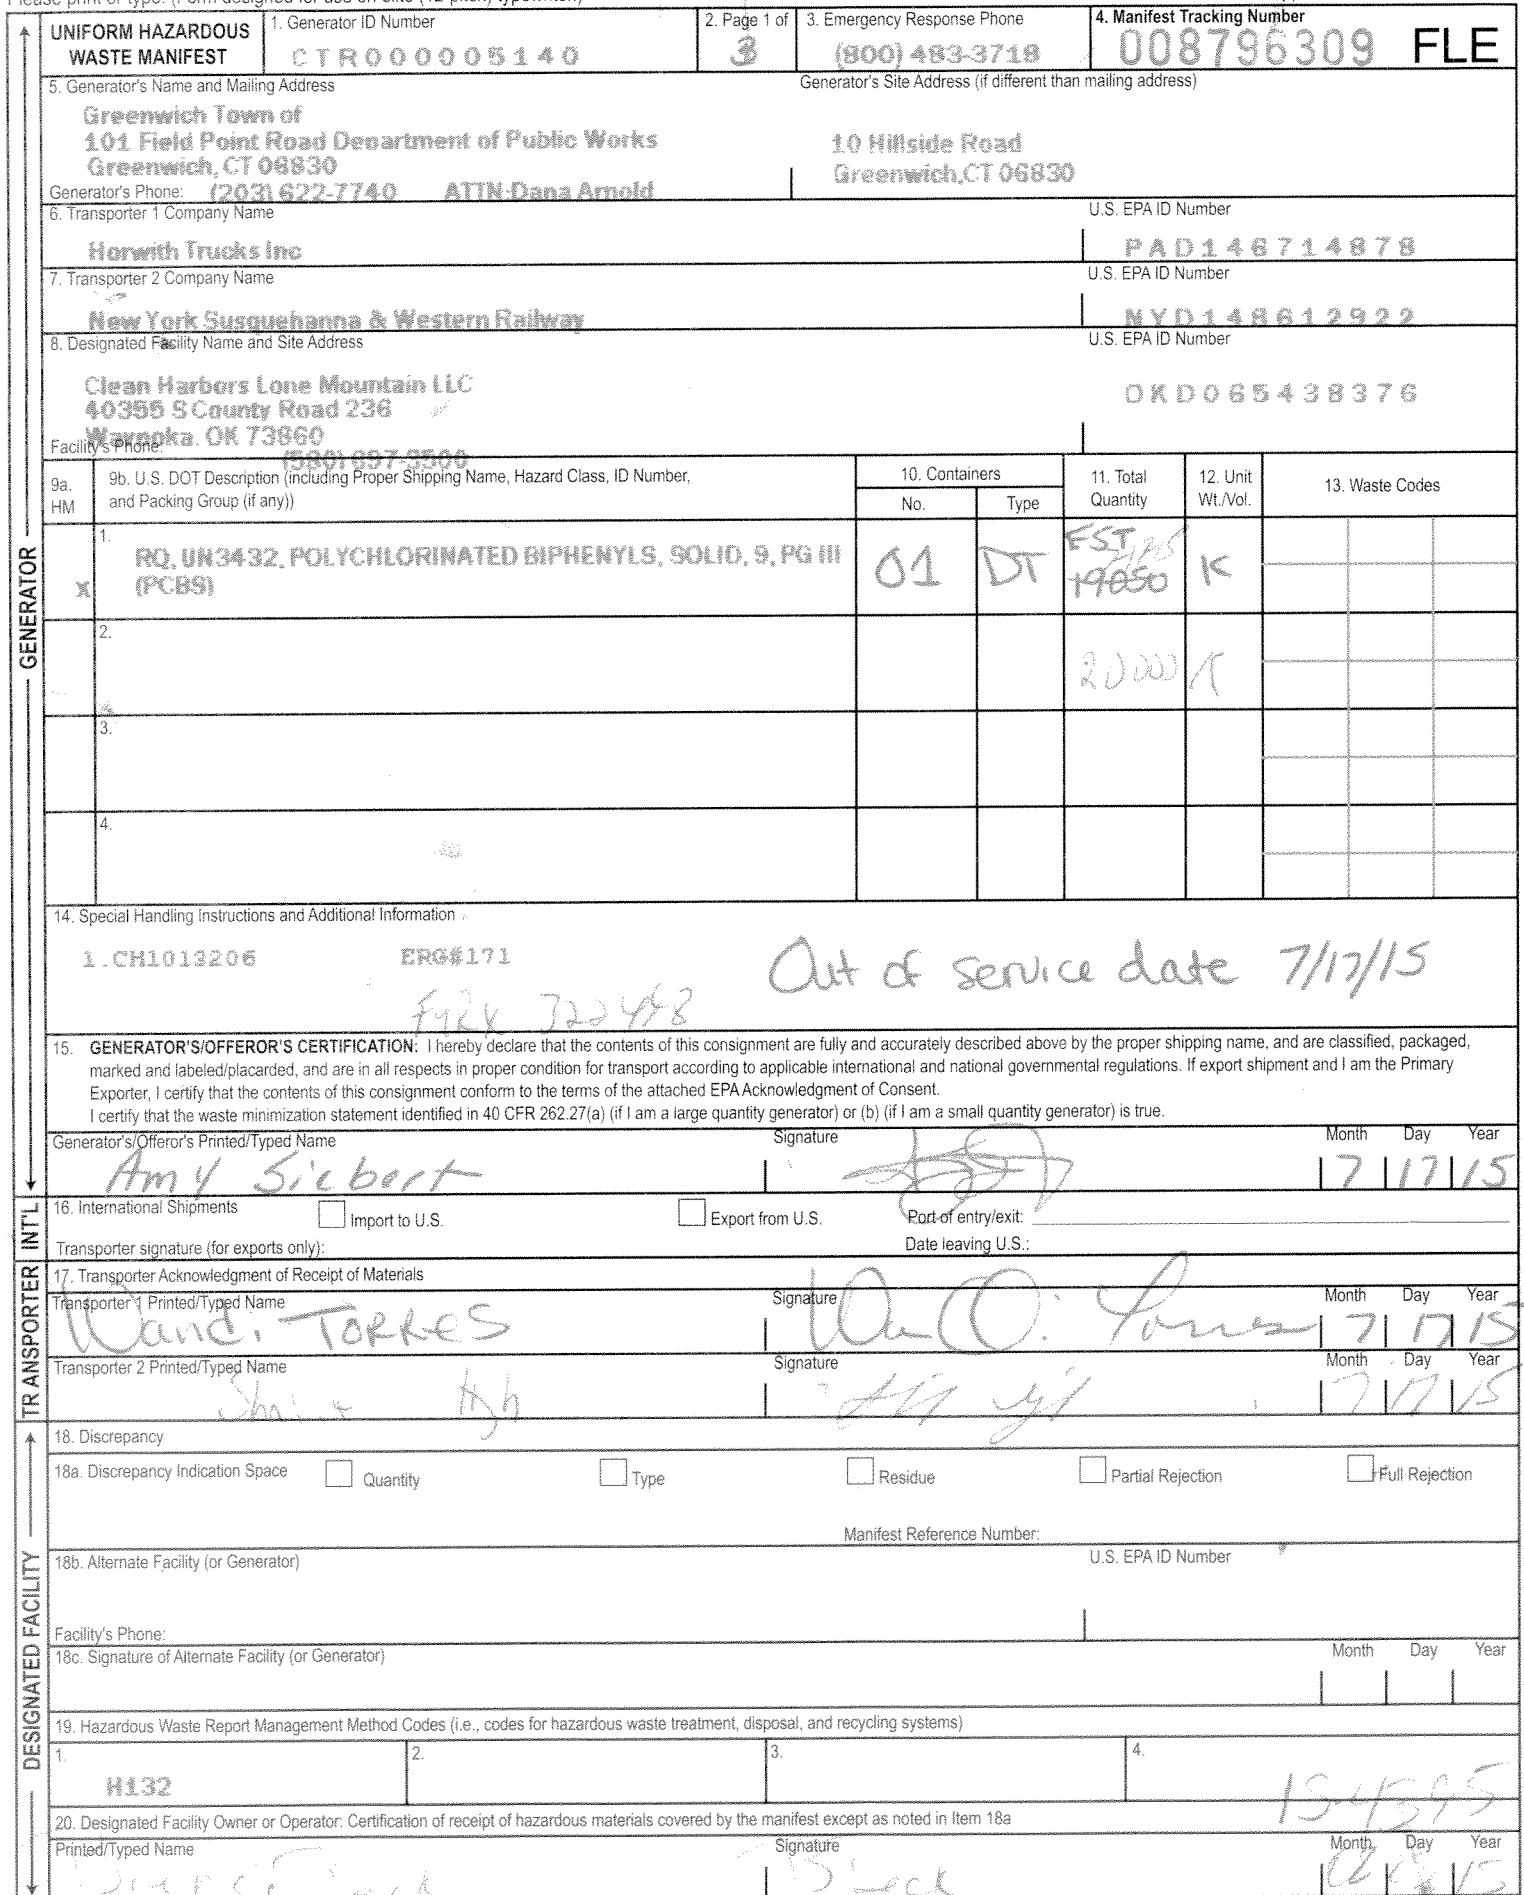 UNIFORM HAZARDOUS WASTE MANIFEST
1. Generator ID Number
CTR000005140
2. Page 1 of
3
3. Emergency Response Phone
(800) 483-3718
4. Manifest Tracking Number
008796309 FLE
5. Generator's Name and Mailing Address
Generator's Site Address (if different than mailing address)
Greenwich Town of
101 Field Point Road Department of Public Works
Greenwich, CT 06830
10 Hillside Road
Greenwich,CT 06830
Generator's Phone: (203) 622-7740 ATTN:Dana Arnold
6. Transporter 1 Company Name
U.S. EPA ID Number
Horwith Trucks Inc
PAD146714878
7. Transporter 2 Company Name
U.S. EPA ID Number
New York Susquehanna & Western Railway
NYD148612922
8. Designated Facility Name and Site Address
U.S. EPA ID Number
Clean Harbors Lone Mountain LLC
40355 S County Road 236
Waynoka, OK 73860
OKD065438376
Facility's Phone: (580) 697-3500
9a. HM
9b. U.S. DOT Description (including Proper Shipping Name, Hazard Class, ID Number, and Packing Group (if any))
10. Containers
No.
Type
11. Total Quantity
12. Unit Wt./Vol.
13. Waste Codes
1.
X RQ, UN3432, POLYCHLORINATED BIPHENYLS, SOLID, 9, PG III
(PCBS)
01 DT EST 19050 K
2.
20000 K
3.
4.
14. Special Handling Instructions and Additional Information
1.CH1013206 ERG#171
Out of service date 7/17/15
15. GENERATOR'S/OFFEROR'S CERTIFICATION: I hereby declare that the contents of this consignment are fully and accurately described above by the proper shipping name, and are classified, packaged,
marked and labeled/placarded, and are in all respects in proper condition for transport according to applicable international and national governmental regulations. If export shipment and I am the Primary
Exporter, I certify that the contents of this consignment conform to the terms of the attached EPA Acknowledgment of Consent.
I certify that the waste minimization statement identified in 40 CFR 262.27(a) (if I am a large quantity generator) or (b) (if I am a small quantity generator) is true.
Generator's/Offeror's Printed/Typed Name
Signature
Month Day Year
Amy Siebert
7 17 15
16. International Shipments
Import to U.S.
Export from U.S.
Port of entry/exit:
Transporter signature (for exports only):
Date leaving U.S.:
17. Transporter Acknowledgment of Receipt of Materials
Transporter 1 Printed/Typed Name
Signature
Month Day Year
Wandi TORRES
7 17 15
Transporter 2 Printed/Typed Name
Signature
Month Day Year
7 17 15
18. Discrepancy
18a. Discrepancy Indication Space
Quantity
Type
Residue
Partial Rejection
Full Rejection
Manifest Reference Number:
18b. Alternate Facility (or Generator)
U.S. EPA ID Number
Facility's Phone:
18c. Signature of Alternate Facility (or Generator)
Month Day Year
19. Hazardous Waste Report Management Method Codes (i.e., codes for hazardous waste treatment, disposal, and recycling systems)
1.
2.
3.
4.
H132
20. Designated Facility Owner or Operator: Certification of receipt of hazardous materials covered by the manifest except as noted in Item 18a
Printed/Typed Name
Signature
Month Day Year
GENERATOR
INT'L
TRANSPORTER
DESIGNATED FACILITY